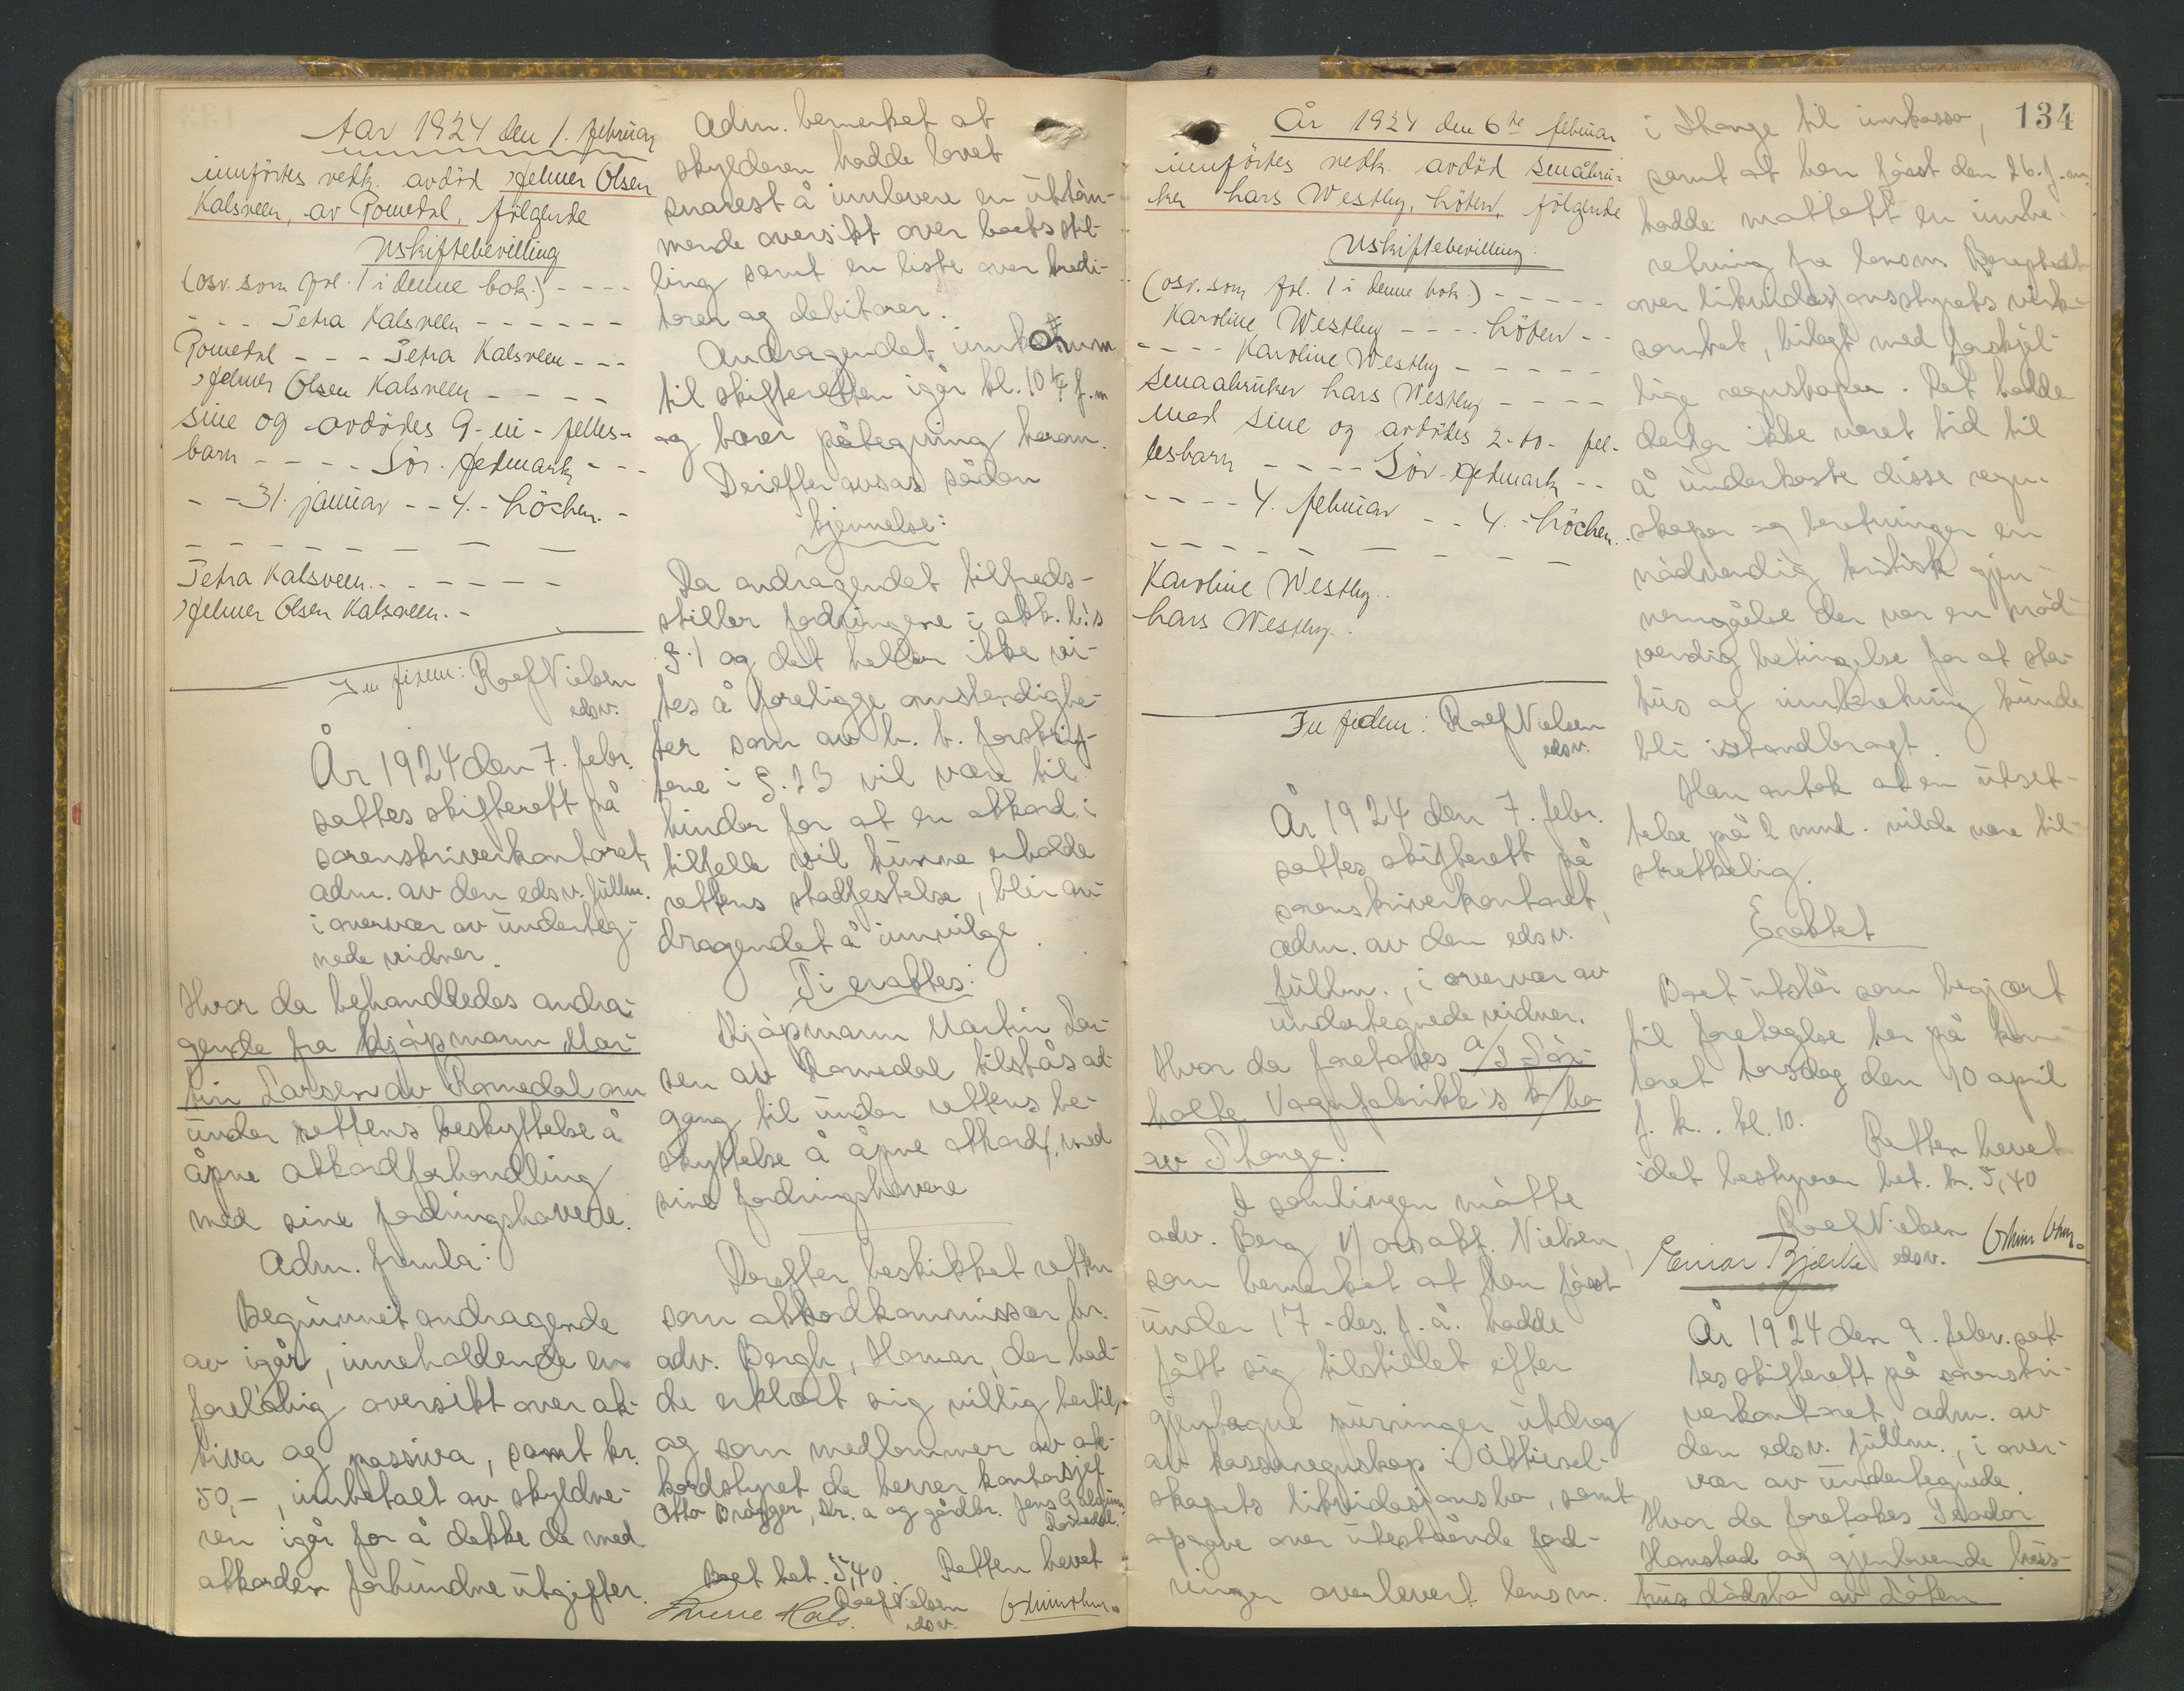 Aar 1924 den 1. februar
innførtes vedk. avdöd Helmer Olsen
Kalsveen, av Romedal, følgende
Uskiftebevilling
(osv. som fol. 1 i denne bok.) - - - -
- - - Petra Kalsveen - - - - - -
Romedal - - - Petra Kalsveen - - -
Helmer Olsen Kalsveen - - - -
sine og avdödes 9 - ni - felles-
barn - - - - Sör-Hedmark - - -
- - 31. januar - - 4. - Löchen. -
- - - - - - - -
Petra Kalsveen. - - - - - -
Helmer Olsen Kalsveen. -
In fidem: Roef Nielsen
edsv.
År 1924 den 7. febr.
sattes skifterett på
sorenskriverkontoret,
adm. av den edsv. fullm.
i overvær av underteg-
nede vidner.
Hvor da behandledes andra-
gende fra kjøpmann Mar-
tin Larsen av Romedal om
under rettens beskyttelse å
åpne akkordforhandling
med sine fordringshavere.
Adm. fremla:
Begrunnet andragende
av igår, inneholdende en
foreløbig oversikt over ak-
tiva og passiva, samt kr.
50,-, innbetalt av skyldne-
ren igår for å dekke de med
akkorden forbundne utgifter.
Adm. bemerket at
skylderen hadde lovet
snarest å innlevere en uttøm-
mende oversikt over boets stil-
ling samt en liste over kredi-
torer og debitorer.
Andragendet innkom
til skifteretten igår kl. 10 1/4 f.m
og bærer påtegning herom.
Derefter avsas sådan
kjennelse:
Da andragendet tilfreds-
stiller fordringene i akk. l.'s
§. 1 og det heller ikke vi-
tes å foreligge omstendighe-
ter som av h. t. forskrif-
tene i §. 23 vil være til
hinder for at en akkord i
tilfelle vil kunne erholde
rettens stadfestelse, blir an-
dragendet å innvilge.
Ti eraktes:
Kjøpmann Martin Lar-
sen av Romedal tilstås ad-
gang til under rettens be-
skyttelse å åpne akkordf. med
sine fordringshavere
Derefter beskikket retten
som akkordkommissær hr.
adv. Bergh, Hamar, der had-
de erklært sig villig hertil,
og som medlemmer av ak-
kordstyret de herrer kontorsjef
Otto Dræger, Hr. a og gårdbr. Jens
Romedal.
Boet bet. 5,40. Retten hevet
Roef Nielsen
edsv.
År 1924 den 6te februar
innförtes vedk. avdöd småbru-
ker Lars Westby, Löten, fölgende
Uskiftebevilling:
(osv. som fol. 1 i denne bok.) - - - - -
Karoline Westby - - - - Löten - -
- - - - Karoline Westby - - - - -
Smaabruker Lars Westby - - - -
med sine og avdödes 2 - to - fel-
lesbarn - - - - Sör-Hedmark - -
- - - - 4. februar - - 4. - Löchen.
- - - - - - - -
Karoline Westby..
Lars Westby..
In fidem: Roef Nielsen
edsv.
År 1924 den 7. febr.
sattes skifterett på
sorenskriverkontoret,
adm. av den edsv.
fullm., i overvær av
undertegnede vidner.
Hvor da foretokes a/s Sør-
holte Vognfabrikk's k/bo
av Stange.
I samlingen møtte
adv. Berg v/ osakf. Nielsen,
som bemerket at han først
under 17 - des. f. å. hadde
fått sig tilstillet efter
gjentagne purringer utdrag
av kasseregnskap i aktiesel-
skapets likvidasjonsbo, samt
opgave over utestående ford-
ringer overlevert lensm.
134
i Stange til innkasso,
samt at han først den 26. f. m.
hadde mottatt en innbe-
retning fra lensm.
over likvidasjonsstyrets virk-
somhet, bilagt med forskjel-
lige regnskaper. Det hadde
derfor ikke været tid til
å underkaste disse regn-
skaper og beretninger en
nødvendig kritisk gjen-
nemgåelse der var en nød-
vendig betingelse for at sta-
tus og innberetning kunde
bli istandbragt.
Han antok at en utset-
telse på 2 mnd. vilde være til-
strekkelig.
Eraktet
Boet utstår som begjært
til foretagelse her på kon-
toret torsdag den 10 april
f. k. kl. 10.
Retten hevet
idet bestyreren bet. kr. 5,40
Roef Nielsen
Einar Bjerke edsv.
År 1924 den 9. febr. sat-
tes skifterett på sorenskri-
verkontoret, adm. av
den edsv. fullm., i over-
vær av undertegnede.
Hvor da foretokes Teodor
Hanstad og gjenlevende hus-
trus dødsbo av Løten